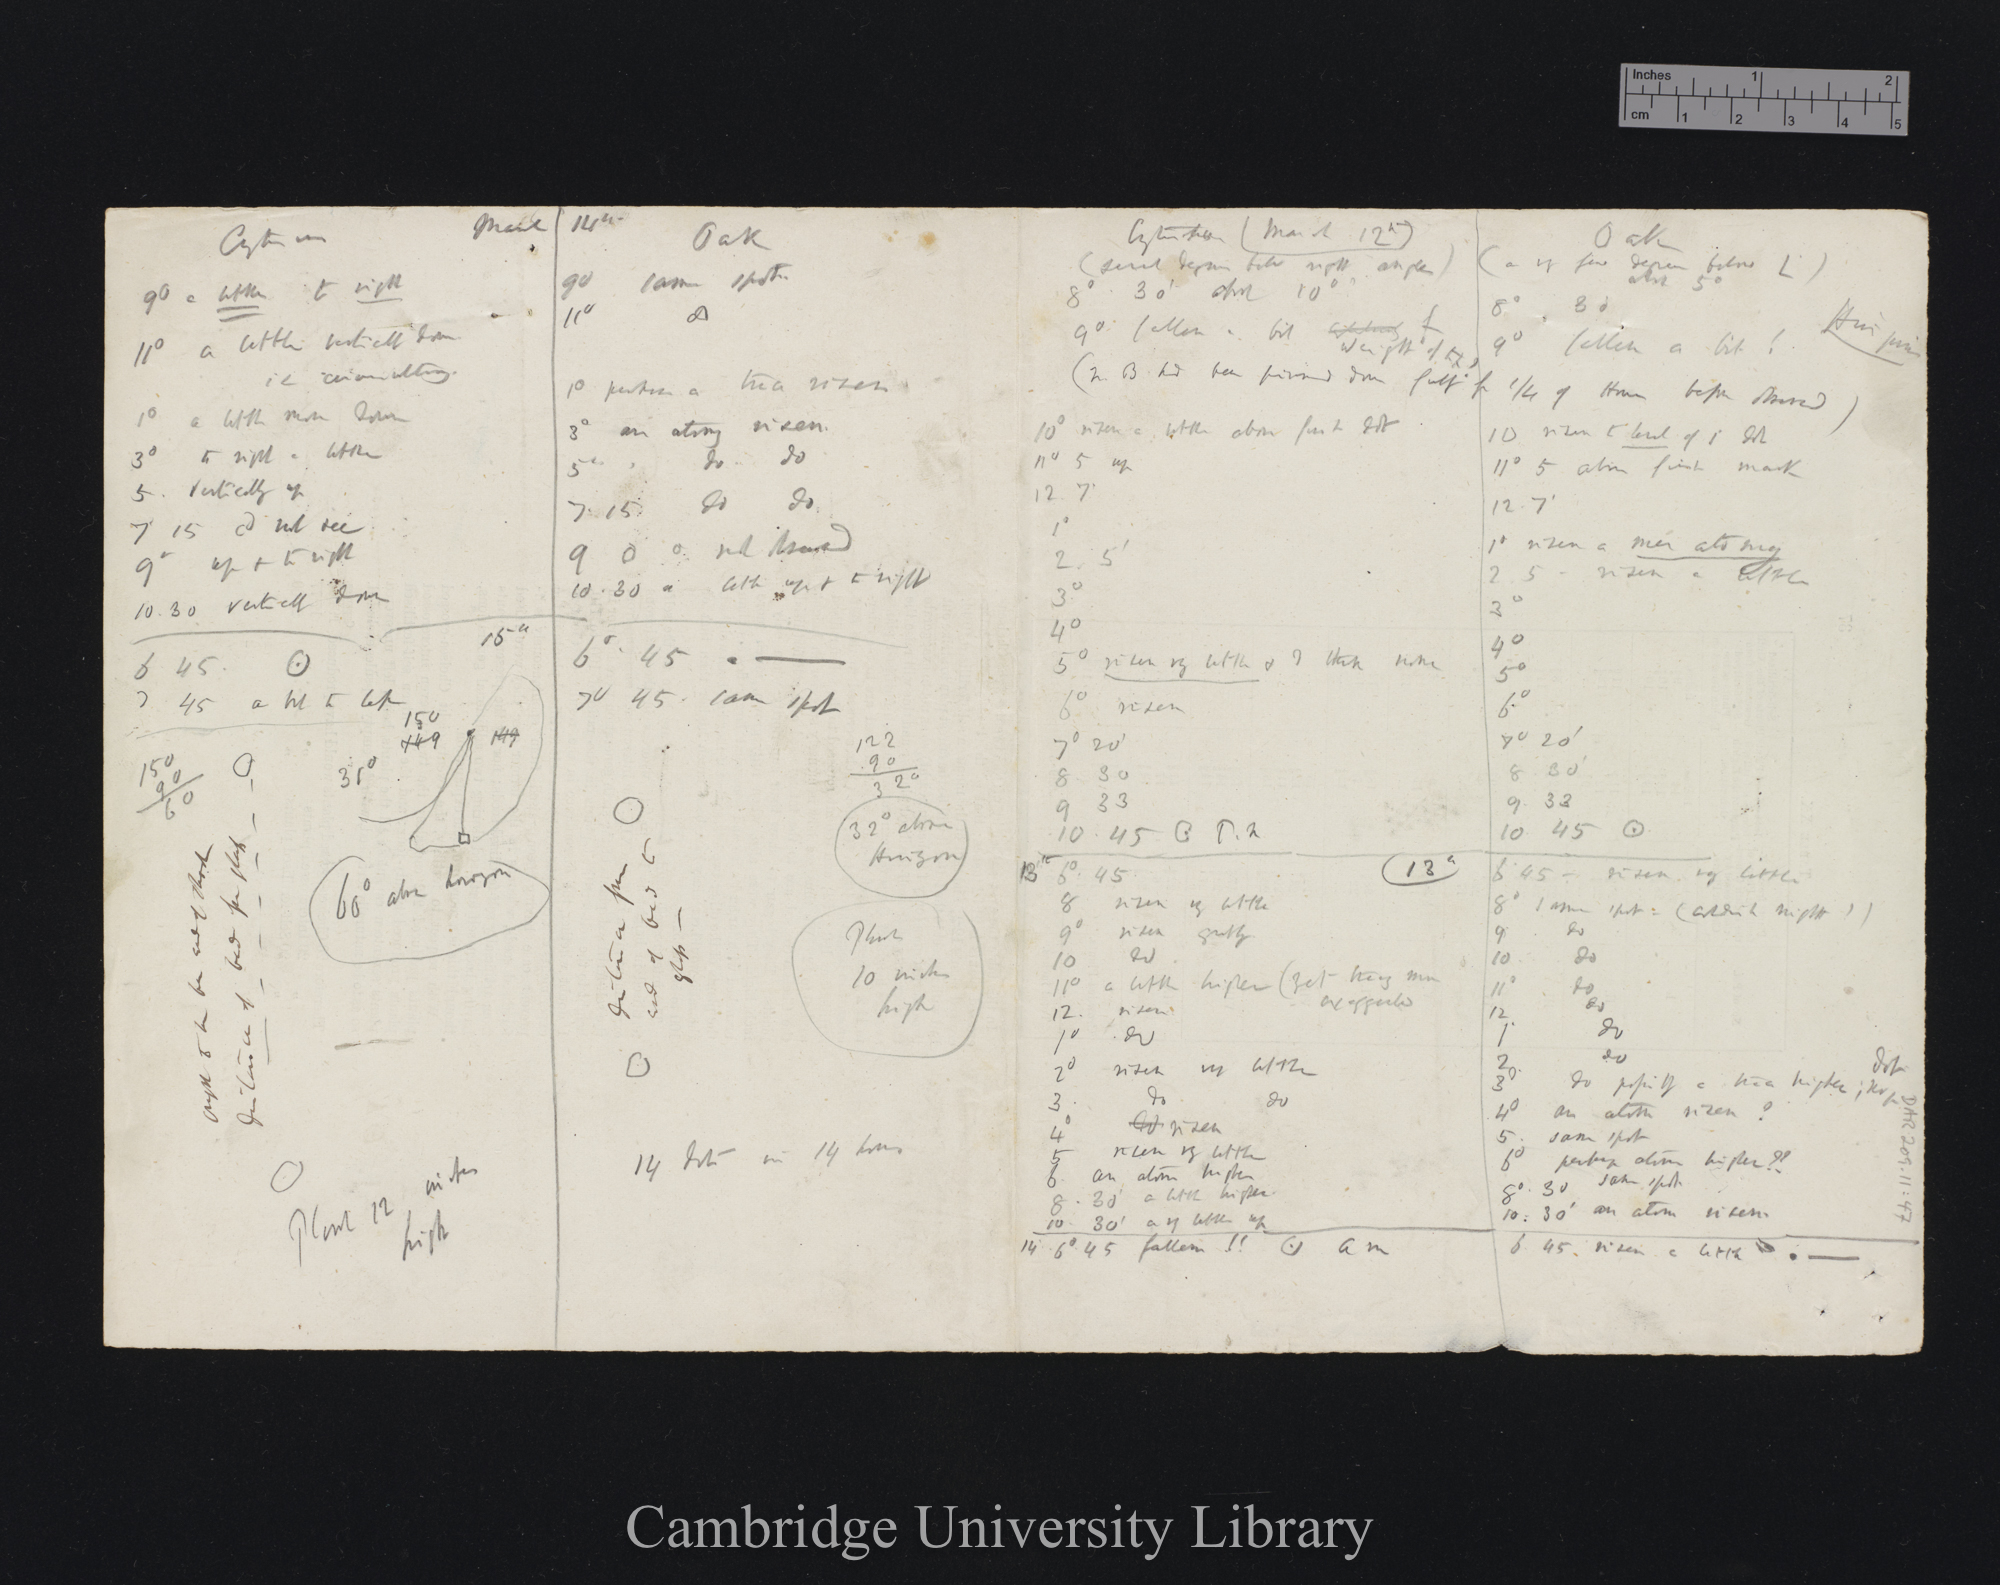 Cytisus
March 14th
9° a little to right
11° a little vertically down
i.e. circumnutating
1° a little more down
3° to right a little
5. vertically up
7 15 cd not see
9° up & to right
10.30 vertically down
15th
6 45.
7 45 a bit to left
150
90
60
150
149
149
35°
60° above horizon
ought to be
distance of bud from glass
Plant 12 inches
high
Oak
9° same spot
11° do
1° perhaps a trace risen
3° an atom risen.
5 do do
7.15 do do
9 0 0 not observed
10.30 a little up & to right
6°. 45
7° 45. same spot
122
90
32°
32° above
Horizon
distance from
end of bud to
glass
Plant
10 inches
high
14 dots in 14 hours
Cytisus (March 12th)
(several degrees below right angles)
8°. 30' about 10°
9° fallen a bit
weight of
(N.B. had been pinned down
for 1/4 of Hour before observed)
10° risen a little above first dot
11° 5 up
12 7'
1°
2 5'
3°
4°
5° risen vy little &
6° risen
7° 20'
8 30
9 33
10.45
13th 6° 45
8 risen vy little
9° risen greatly
10 do
11° a little higher (yet being
exaggerated
12. risen
1° do
2° risen vy little
3. do do
4° do risen
5 risen vy little
6 an atom higher
8. 30' a little higher.
10. 30' a vy little up
14 6° 45 fallen!! a m
Oak
(a vy few degrees below L)
about 5°
8°. 30
9° fallen a bit!
10 risen to level of 1 dot
11° 5 above first mark
12.7'
1° risen a mere atom
2 5 - risen a little
3°
4°
5°
6°
7° 20'
8 30'
9 33
10 45
13th
6 45 - risen vy little
8° same spot
9 do
10. do
11° do
12. do
1. do
2. do
3° do possibly a trace higher;
dot
4° an atom risen?
5. same spot
6° perhaps atom higher??
8°. 30 same spot
10. 30' an atom risen.
6 45. risen a little
DAR 209.11:47
Inches 1 2
cm 1 2 3 4 5
Cambridge University Library